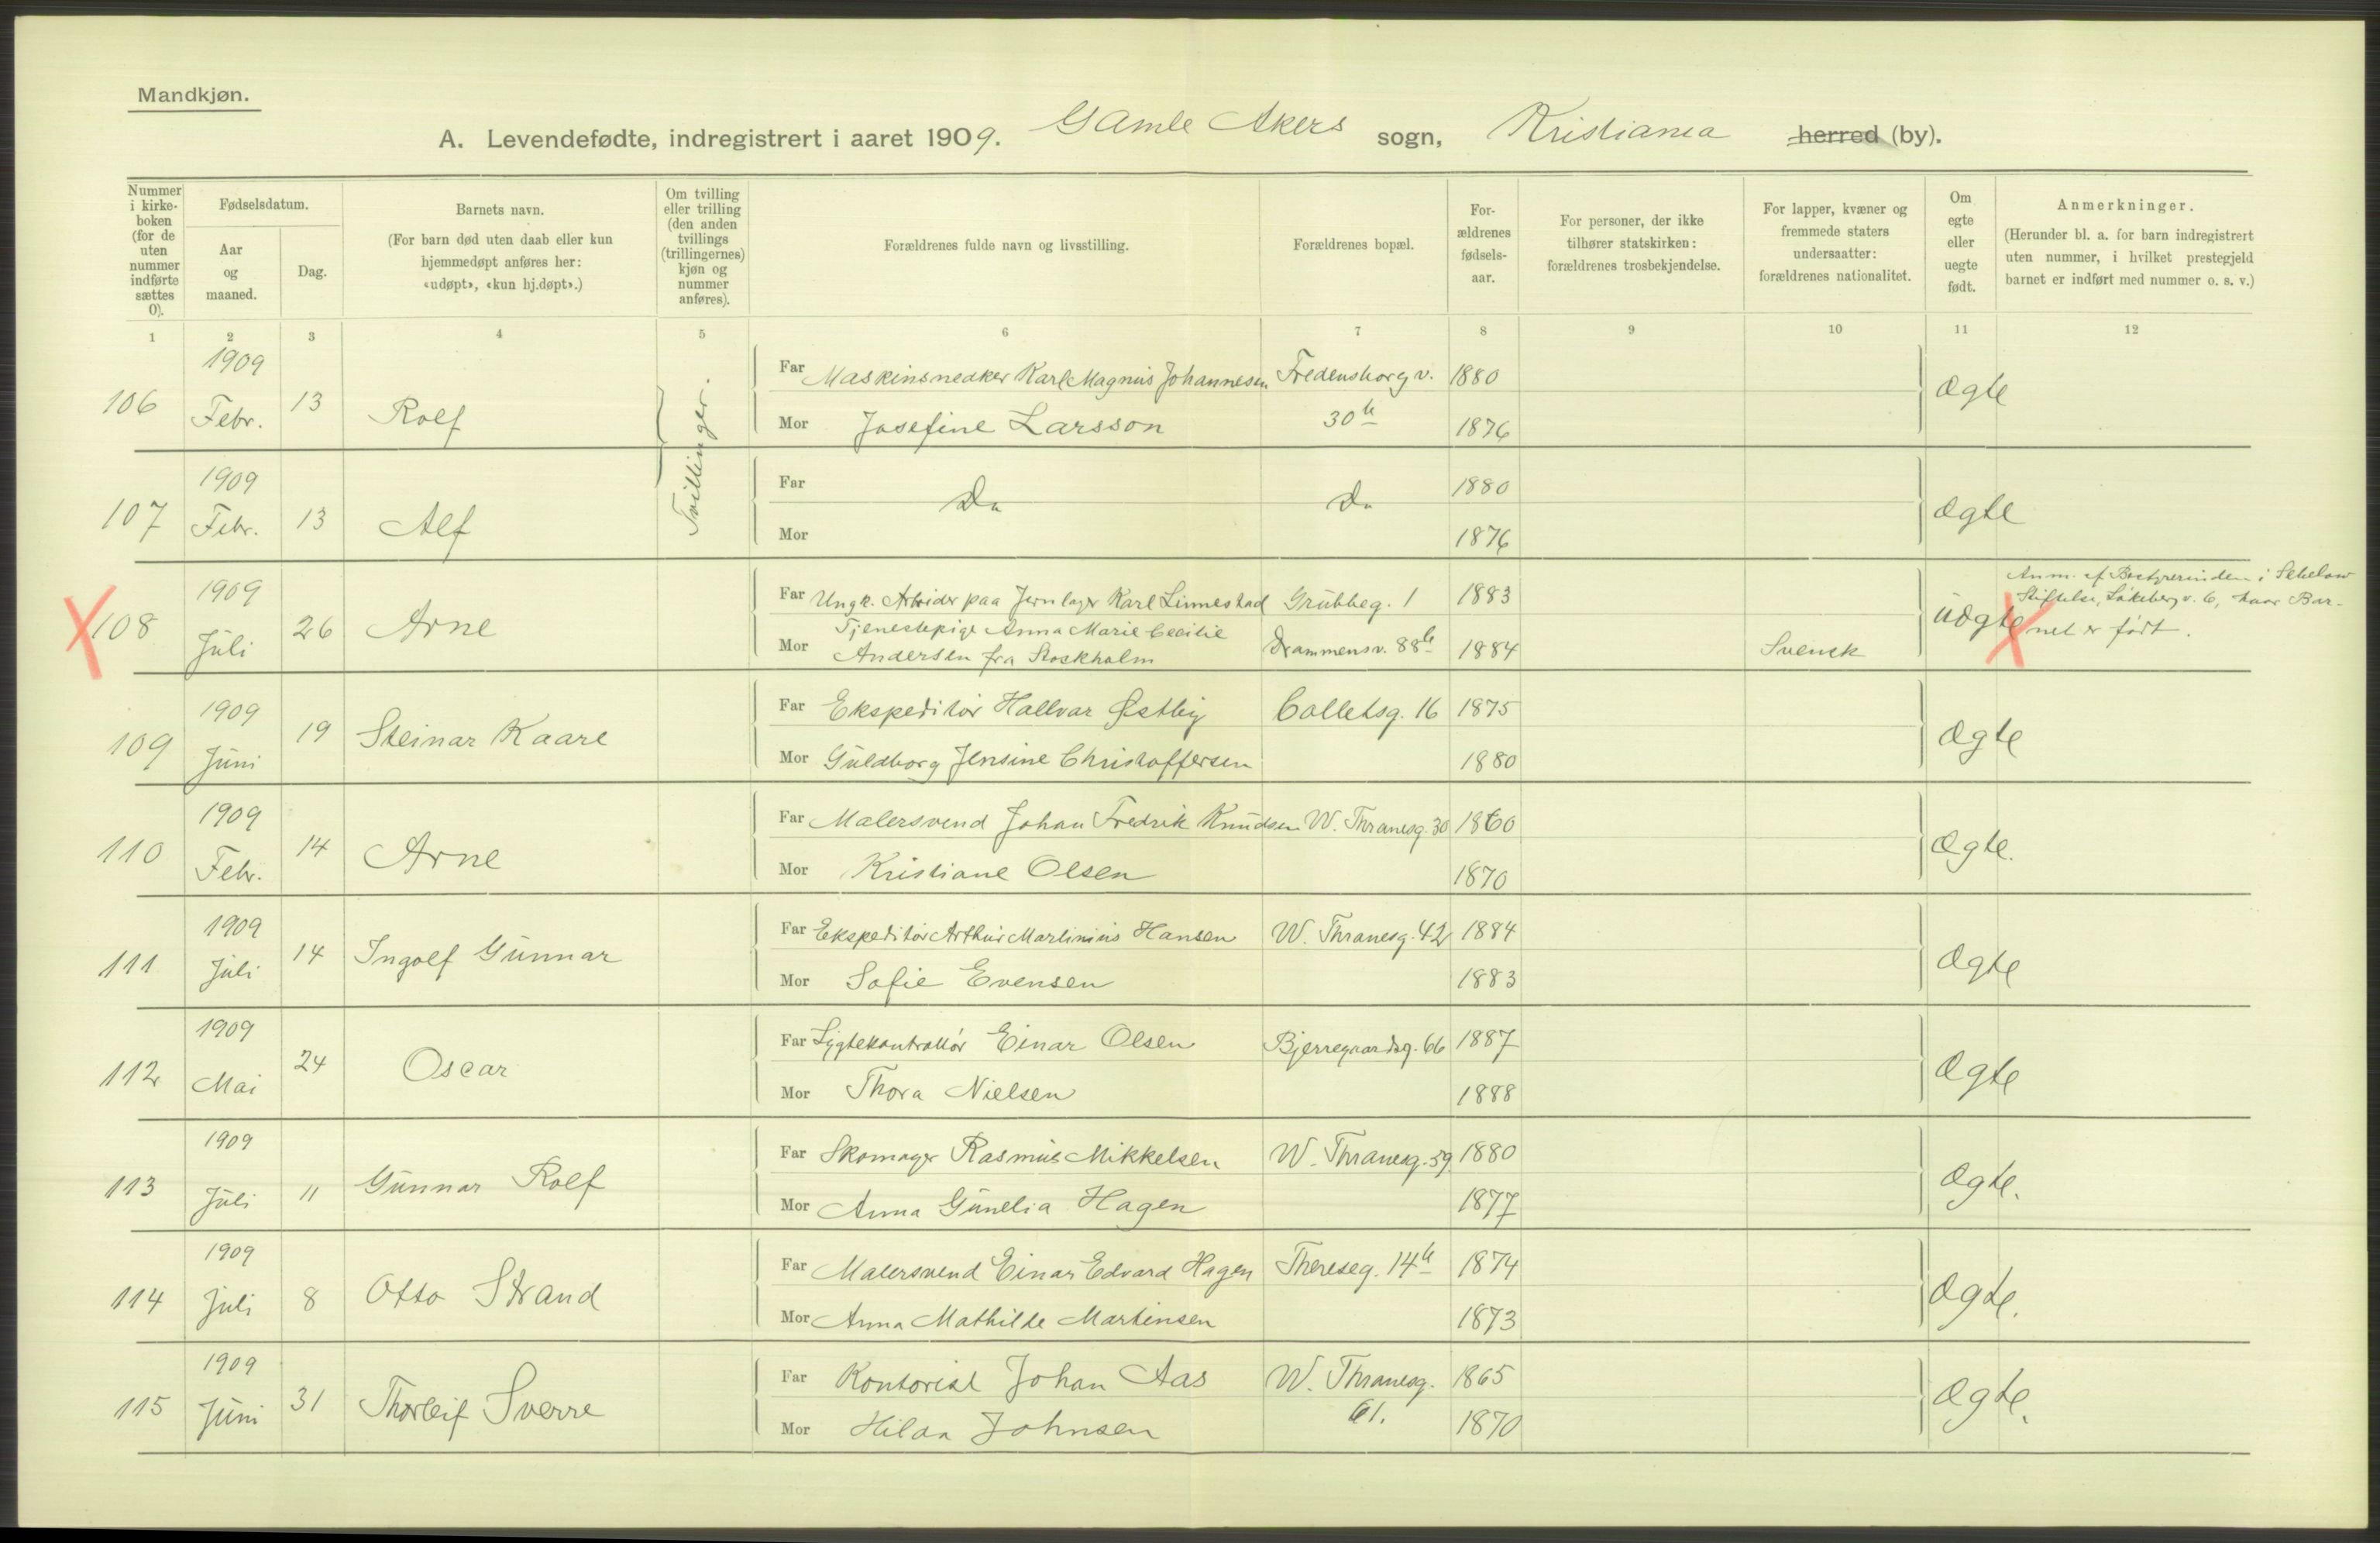 Mandkjøn.
A. Levendefødte, indregistrert i aaret 1909. Gamle Akers sogn, Kristiania herred (by).
Nummer i kirke-boken (for de uten nummer indførte sættes 0).
Fødselsdatum.
Aar og maaned.
Dag.
Barnets navn.
(For barn død uten daab eller kun hjemmedøpt anføres her: «udøpt», «kun hj.døpt».)
Om tvilling eller trilling (den anden tvillings (trillingernes) kjøn og nummer anføres).
Forældrenes fulde navn og livsstilling.
Forældrenes bopæl.
For-ældrenes fødsels-aar.
For personer, der ikke tilhører statskirken: forældrenes trosbekjendelse.
For lapper, kvæner og fremmede staters undersaatter: forældrenes nationalitet.
Om egte eller uegte født.
Anmerkninger.
(Herunder bl. a. for barn indregistrert uten nummer, i hvilket prestegjeld barnet er indført med nummer o. s. v.)
1 2 3 4 5 6 7 8 9 10 11 12
1909
Far Maskinsnedker Karl Magnus Johannesen Fredensborgv. 1880
106 Febr. 13 Rolf Tvillinger. Ægte
Mor Josefine Larsson 30b 1876
1909
Far 1880
107 Febr. 13 Alf Do Do Ægte
Mor 1876
1909
Far Ungk. Arbeider paa Jernlager Karl Linnestad Grübbeg. 1 1883
108 Juli 26 Arne Uægte
Mor Tjenestepige Anna Marie Cecilie
Andersen fra Stockholm Drammensv. 88b 1884 Svensk
Anm. af Bestyrerinden i Schelow
Stiftelse, 6, hvor Bar-
net er født.
1909
Far Ekspeditör Hallvar Østby Colletsg. 16 1875
109 Juni 19 Steinar Kaare Ægte
Mor Guldborg Jensine Christoffersen 1880
1909
Far Malersvend Johan Fredrik Knudsen W. Thranesg. 30 1860
110 Febr. 14 Arne Ægte.
Mor Kristiane Olsen 1870
1909
Far Ekspeditör Arthur Martinius Hansen W. Thranesg. 42 1884
111 Juli 14 Ingolf Gunnar Ægte
Mor Sofie Evensen 1883
1909
Far Lygtekontrollör Einar Olsen Bjerregaardsg. 66 1887
112 Mai 24 Oscar Ægte
Mor Thora Nielsen 1888
1909
Far Skomager Rasmus Mikkelsen W. Thranesg. 59 1880
113 Juli 11 Gunnar Rolf Ægte.
Mor Anna Gunelia Hagen 1877
1909
Far Malersvend Einar Edvard Hagen Thereseg. 14b 1874
114 Juli 8 Otto Strand Ægte.
Mor Anna Mathilde Martinsen 1873
1909
Far Kontorist Johan Aas W. Thranesg. 1865
115 Juni 31 Thorleif Sverre 61. Ægte.
Mor Hilda Johnsen 1870